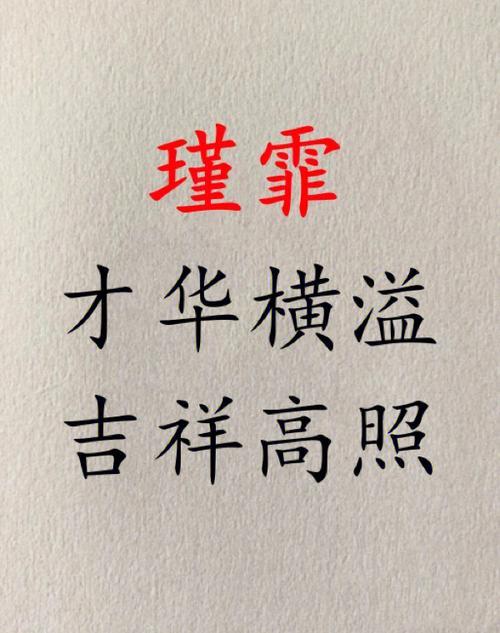 瑾霏
才华横溢
吉祥高照